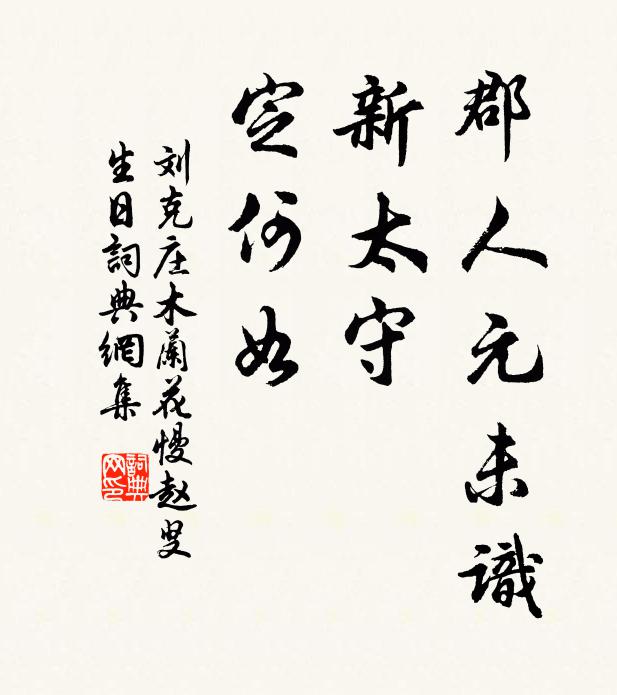 郡人元未識
新太守
定何如
刘克庄木蘭花慢赵叟
生日詞典網集
詞典
网印